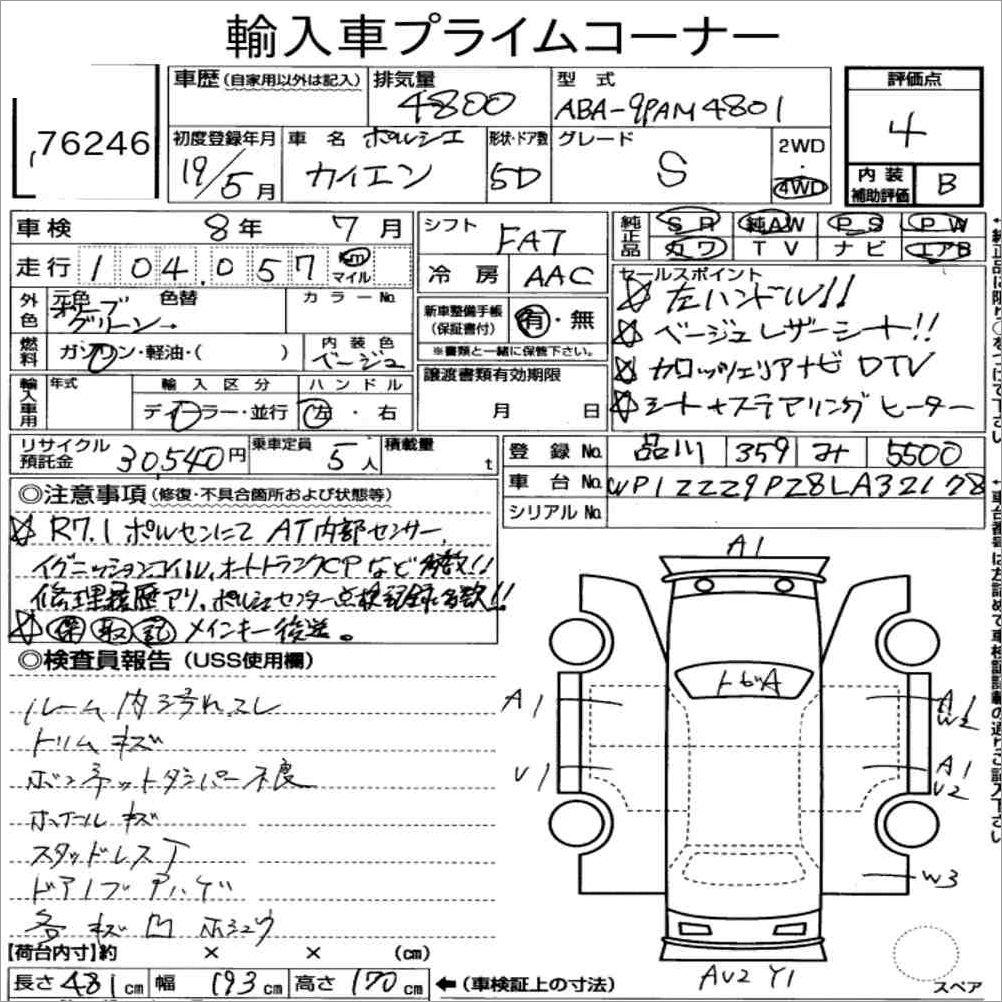 輸入車プライムコーナー
76246
車歴 (自家用以外は記入)
排気量
4800
型式
ABA-9PAM4801
評価点
4
初度登録年月
19/5月
車名 ポルシェ
カイエン
形状・ドア数
5D
グレード
S
2WD
4WD
内装
補助評価
B
車検 8年 7月
シフト FAT
純正品 SR 純AW PS PW
カワ TV ナビ エアB
走行 104,057 km マイル
冷房 AAC
外色 元色 色替 カラーNo.
オリーブ
グリーン
新車整備手帳
(保証書付)
有・無
※書類と一緒に保管下さい。
燃料 ガソリン・軽油・( )
内装色
ベージュ
セールスポイント
☆左ハンドル!!
☆ベージュレザーシート!!
☆カロッツェリアナビ DTV
☆シート+ステアリングヒーター
輸入車用 年式 輸入区分 ハンドル
ディーラー・並行 左・右
譲渡書類有効期限
月 日
リサイクル
預託金
30,540円
乗車定員
5人
積載量
t
登録No. 品川 359 み 5500
車台No. WP1ZZZ9PZ8LA32178
シリアルNo.
◎注意事項(修復・不具合箇所および状態等)
☆R7.1 ポルセンにて AT内部センサー、
イグニッションコイル、オートトランクCPなど多数!!
修理履歴アリ、ポルシェセンター点検記録多数!!
☆保 取 記 メインキー後送。
◎検査員報告 (USS使用欄)
ルーム内汚れスレ
トリムキズ
ボンネットダンパー不良
ホイールキズ
スタッドレスT
ドアノブ ハゲ
各キズ凹 ホシュウ
【荷台内寸】約 × × (cm)
長さ 481cm 幅 193cm 高さ 170cm
←(車検証上の寸法)
A1
トビA
A1
A1
W2
U1
A1
U2
W3
AU2 Y1
スペア